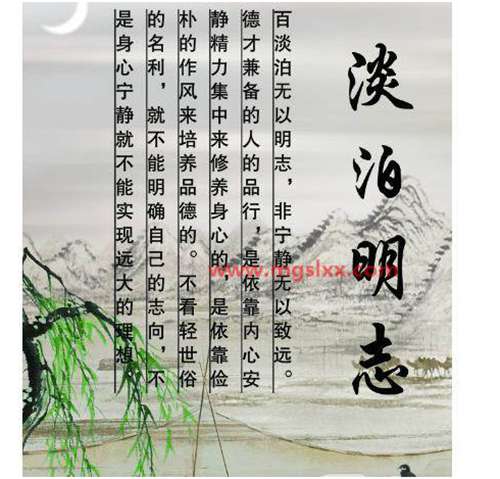 淡泊明志
百淡泊无以明志，非宁静无以致远。
德才兼备的人的品行，是依靠内心安
静精力集中来修养身心的，是依靠俭
朴的作风来培养品德的。不看轻世俗
的名利，就不能明确自己的志向，不
是身心宁静就不能实现远大的理想
www.mgslxx.com